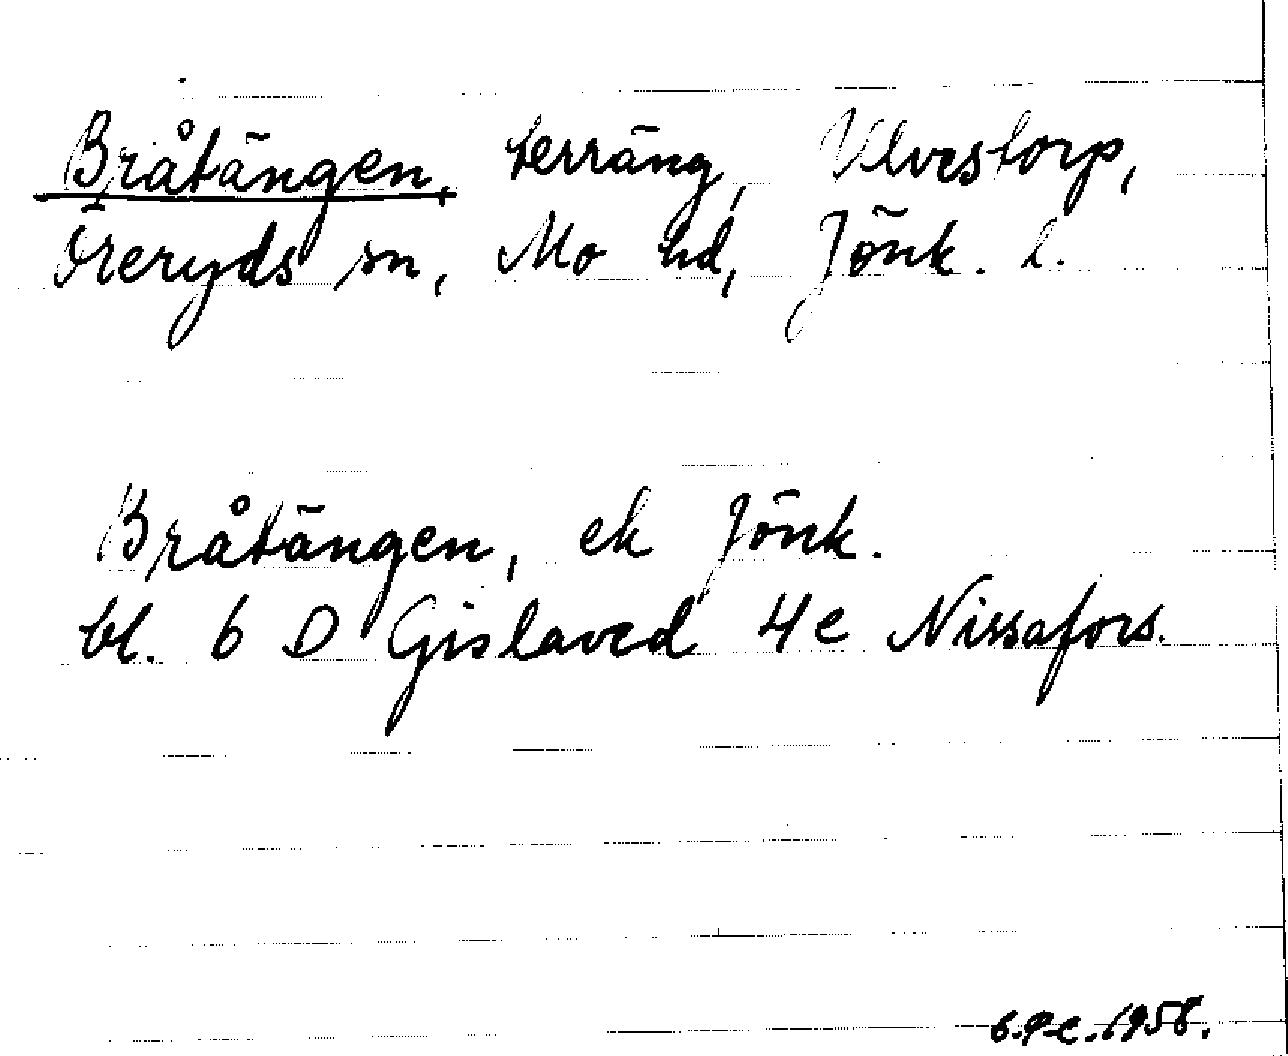 Bråtängen, terräng, Ulvestorp,
Öreryds sn, Mo hd, Jönk. l.
Bråtängen, ek Jönk.
bl. 6 D Gislaved 4e Nissafors.
1958.